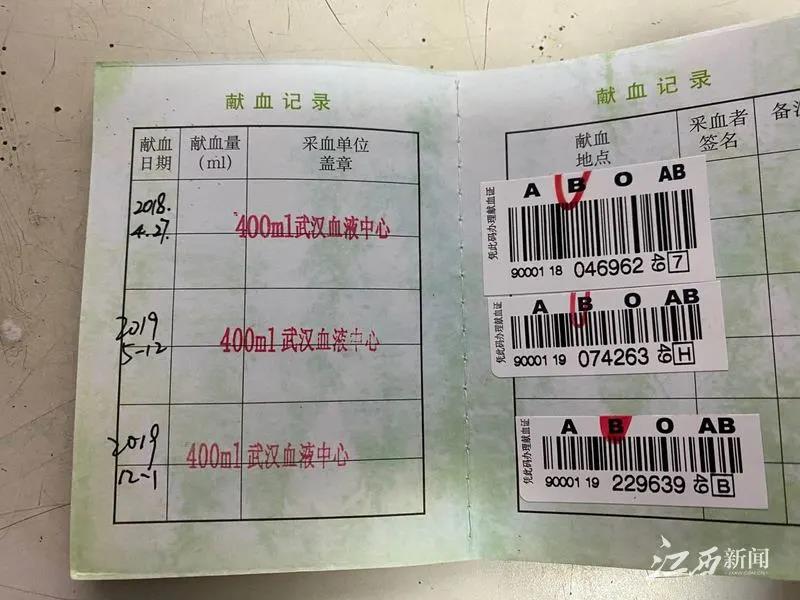 献血记录
献血日期
献血量(ml)
采血单位盖章
2018.
4.27.
400ml武汉血液中心
2019
5-12
400ml武汉血液中心
2019
12-1
400ml武汉血液中心
献血记录
献血地点
采血者签名
备注
凭此码办理献血证
A B O AB
90001 18 046962 49 7
凭此码办理献血证
A B O AB
90001 19 074263 49 H
凭此码办理献血证
A B O AB
90001 19 229639 49 B
江西新闻